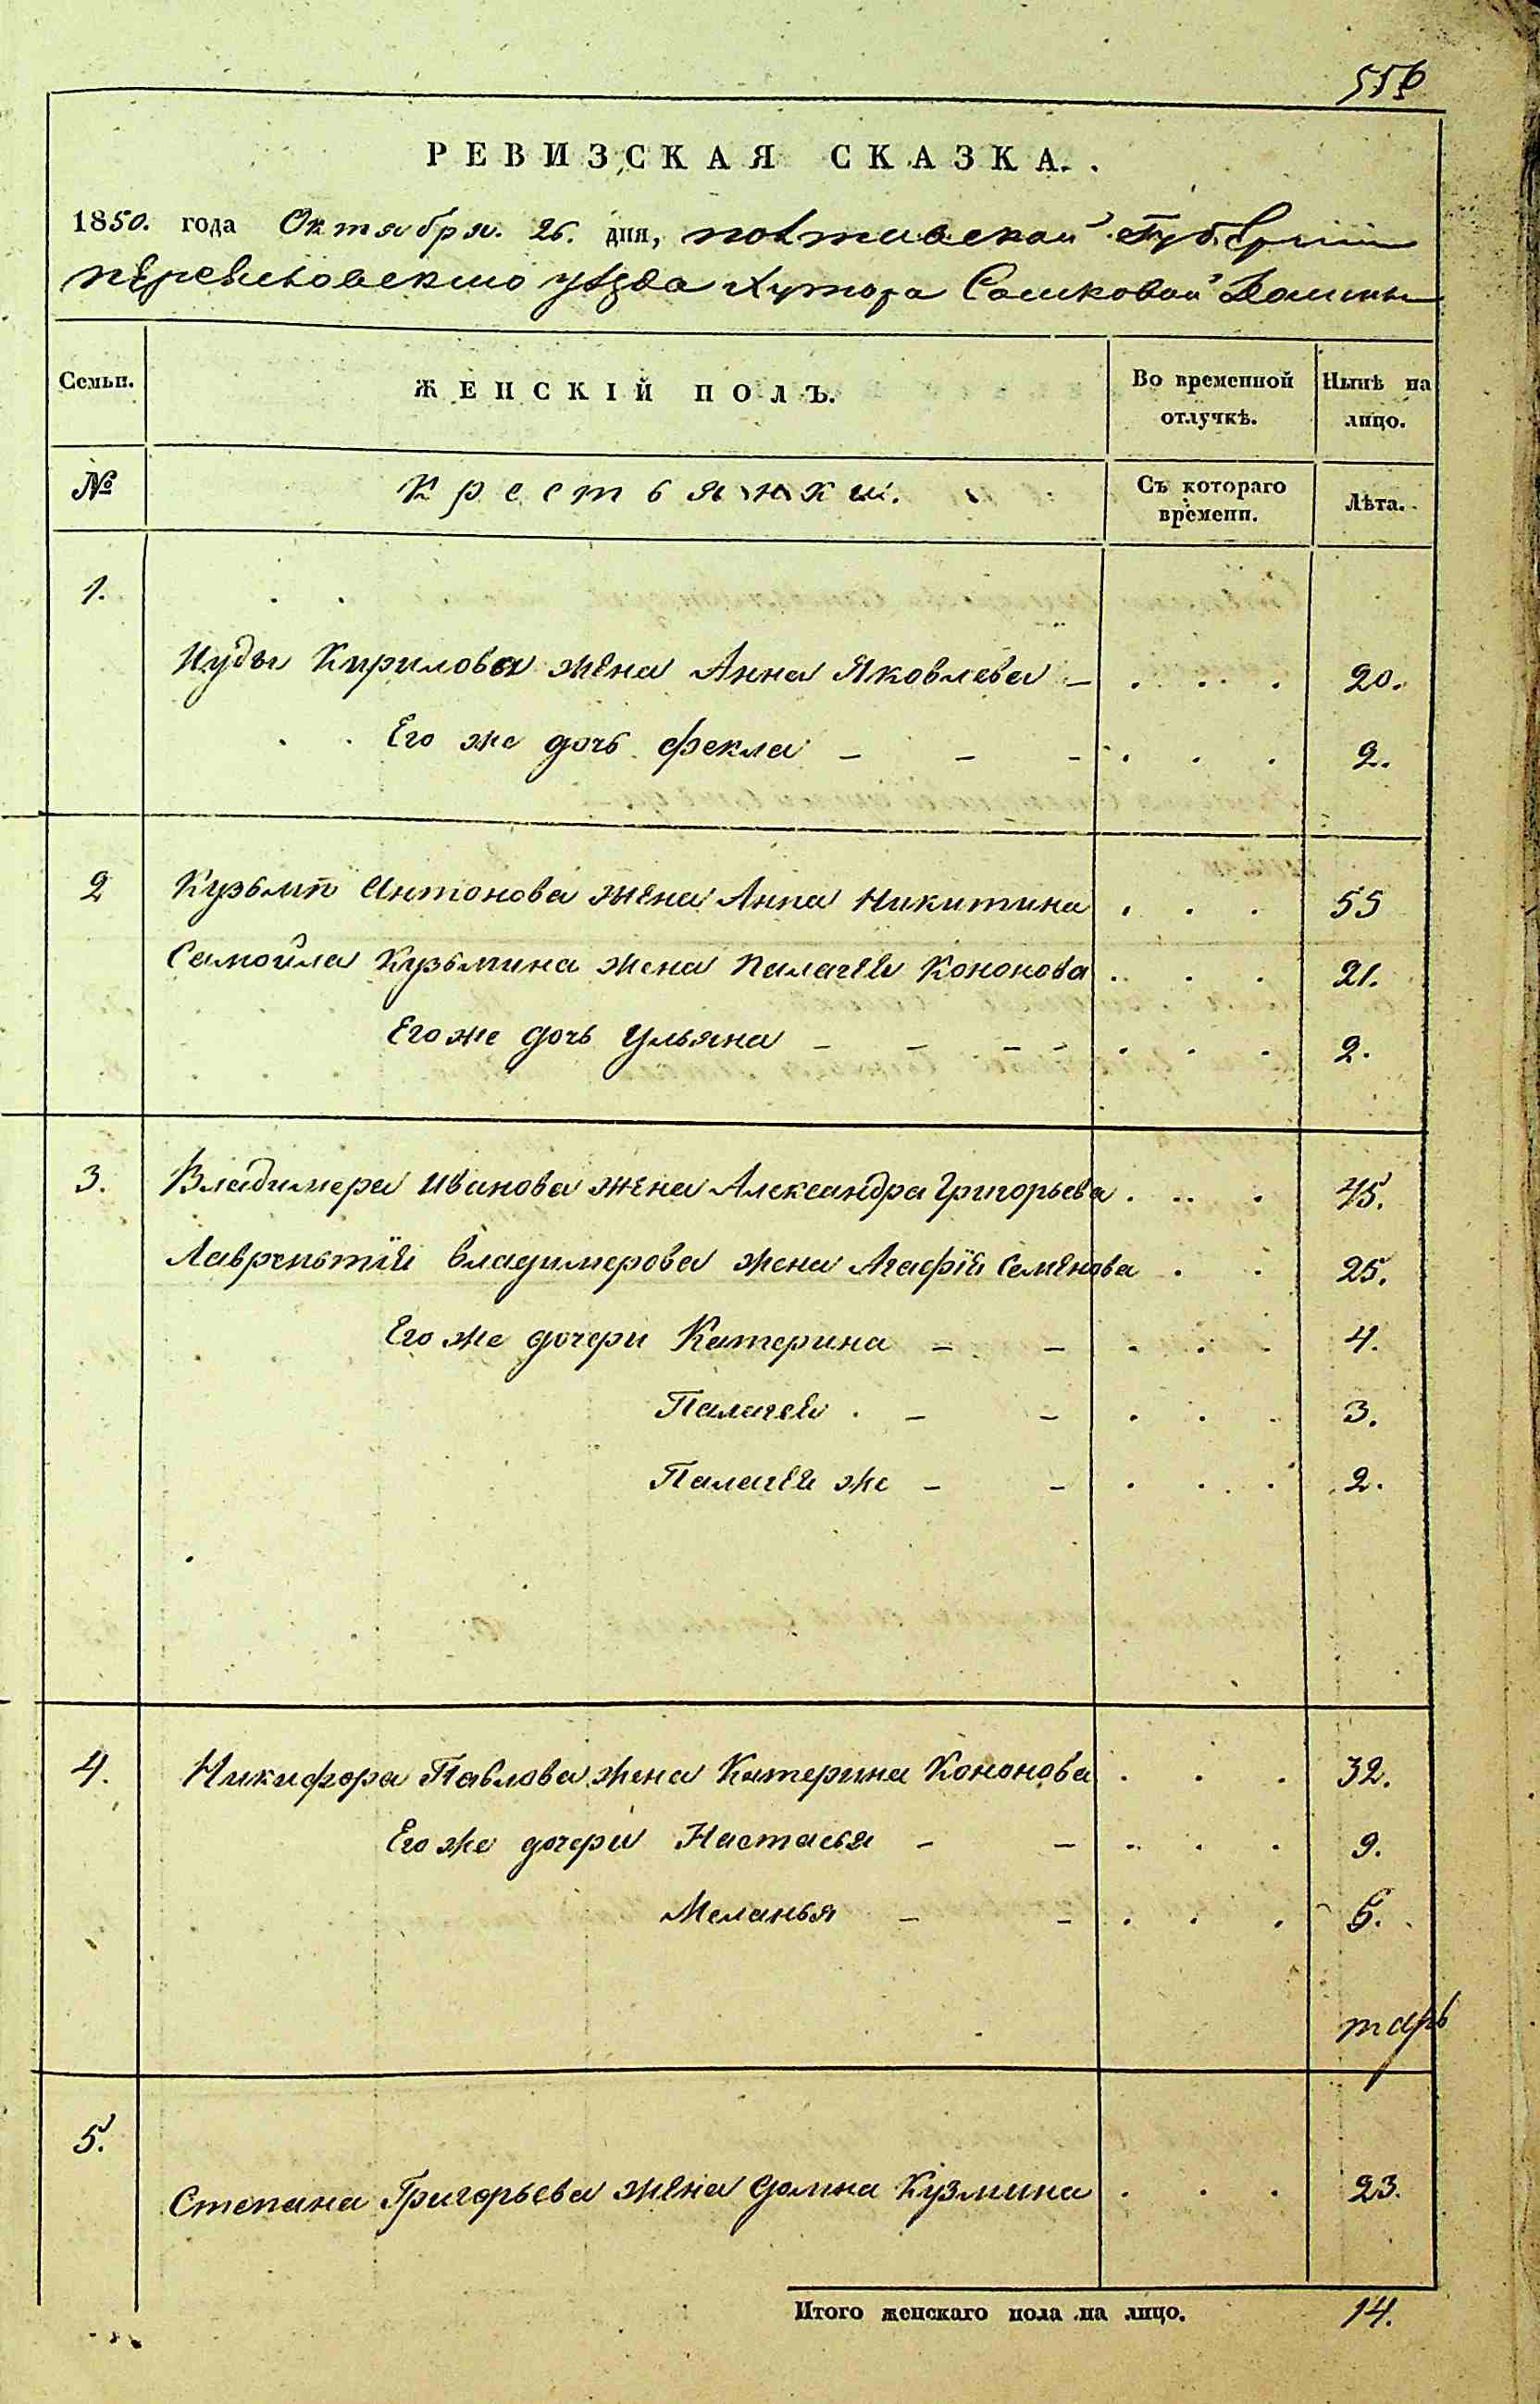 556
РЕВИЗСКАЯ СКАЗКА.
1850. года Октября. 26. дня, полтавской Губернии
Переясловскаго уѣзда Хутора Сошковой Долины
Семьи. ЖЕНСКІЙ ПОЛЪ. Во временной отлучкѣ. Нынѣ на лицо.
№ Крестьянки. Съ котораго времени. Лѣта.
1.
Иуды Кирилова жена Анна Яковлева – . . . 20.
Его же дочь Фекла – – – . . . 2.
2 Кузьмы Антонова жена Анна Никитина . . . 55
Самойла Кузьмина жена Палагея Кононова . . . 21.
Его же дочь Ульяна – – – – . . . 2.
3. Владимера Иванова жена Александра Григорьева . . . 45.
Лаврентія Владимерова жена Агафія Семенова . . 25.
Его же дочери Катерина – – . . . 4.
Палагея – – . . . 3.
Палагея же – – . . . 2.
4. Никифора Павлова жена Катерина Кононова . . . 32.
Его же дочери Настасья – – . . . 9.
Меланья – – . . . 6.
тарь
5.
Степана Григорьева жена Домна Кузмина . . . 23.
Итого женскаго пола на лицо. 14.